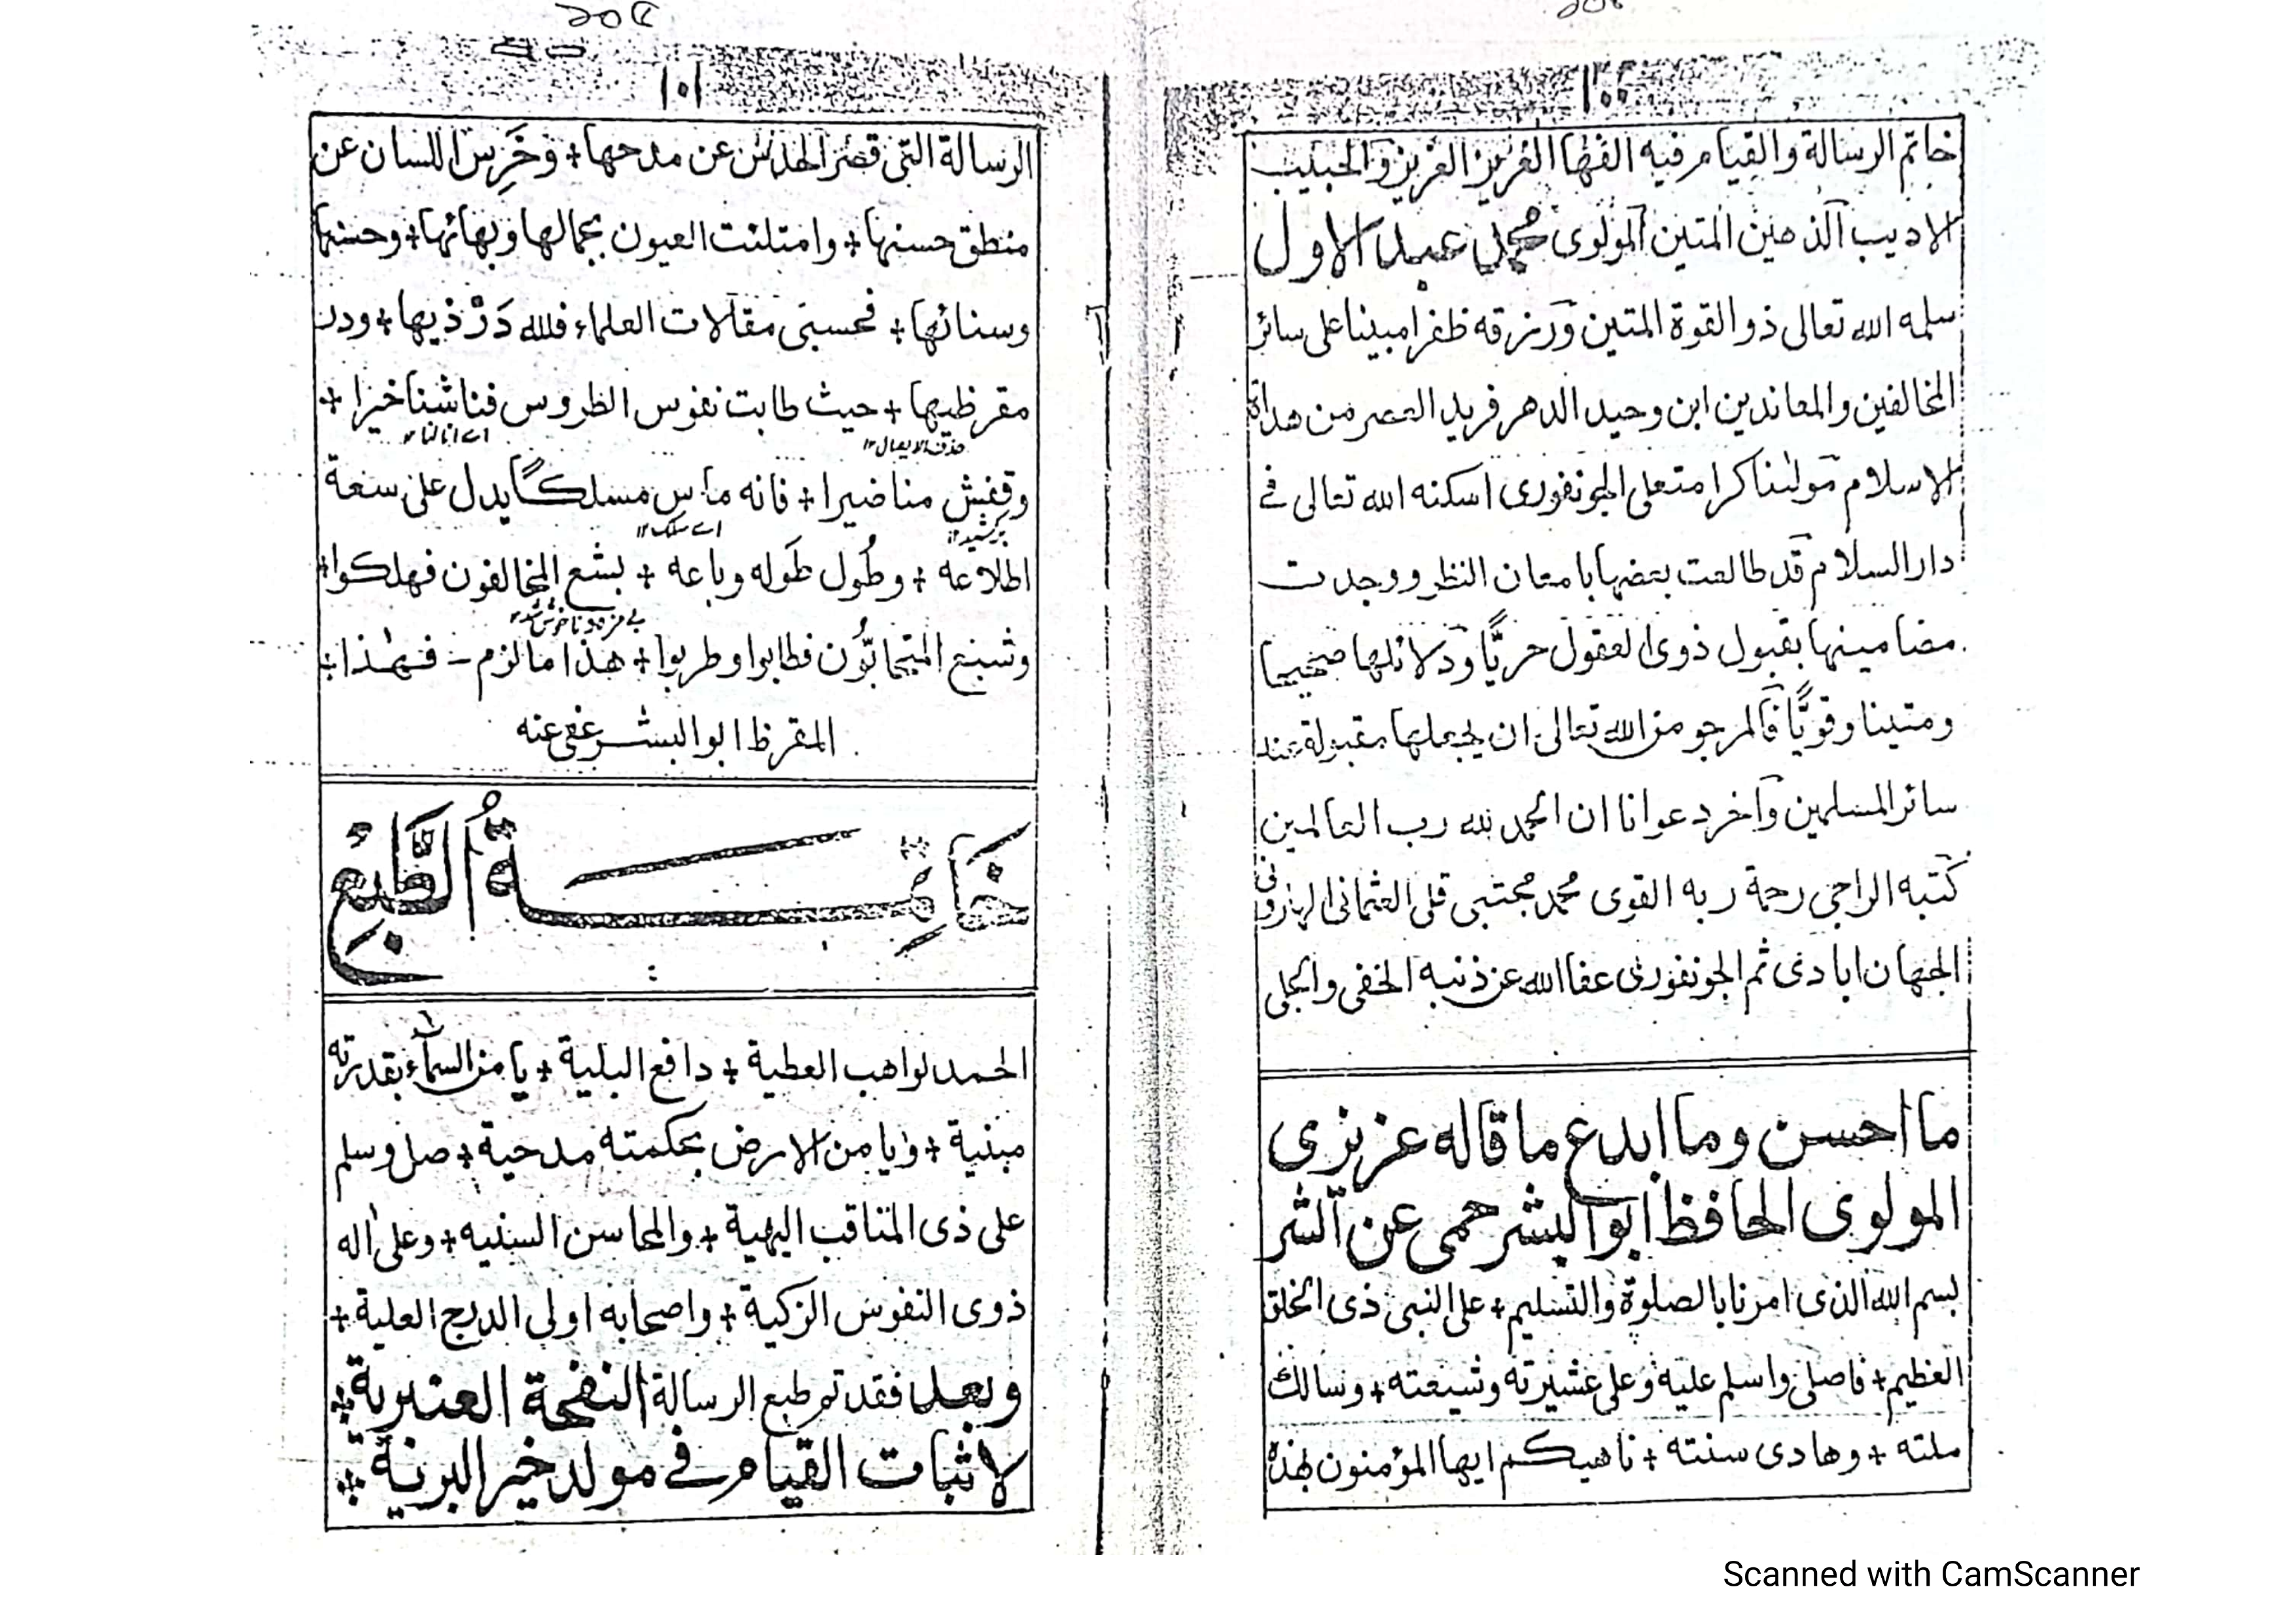 ١٠٠
خاتم الرسالة والقيام فيه الفها العزيز الغريز والحبيب
الاديب الذهين المتين المولوى محمد عبد الاول
سلمه الله تعالى ذو القوة المتين ورزقه ظفرا مبينا على سائر
المخالفين والمعاندين ابن وحيد الدهر فريد العصر من هداة
الاسلام مولٰنا كرامتعلى الجونفورى اسكنه الله تعالى فى
دار السلام قد طالعت بعضها بامعان النظر ووجدت
مضامينها بقبول ذوى العقول حريًّا ودلائلها صحيحا
ومتينا وقويًّا فالمرجو من الله تعالى ان يجعلها مقبولة عند
سائر المسلمين وآخر دعوانا ان الحمد لله رب العالمين
كتبه الراجى رحمة ربه القوى محمد مجتبى قلى العثمانى الهارونى
الجهان ابادى ثم الجونفورى عفا الله عن ذنبه الخفى والجلى
ما احسن وما ابدع ما قاله عزيزى
المولوى الحافظ ابو البشر حمى عن الشر
بسم الله الذى امرنا بالصلوة والتسليم + على النبى ذى الخلق
العظيم + فاصلى واسلم عليه وعلى عشيرته وشيعته + وسالك
ملته + وهادى سنته + ناهيكم ايها المؤمنون لهذه
١٠١
الرسالة التى قصر الحدس عن مدحها + وخَرِس اللسان عن
منطق حسنها + وامتلئت العيون بجمالها وبهائها + وحسنها
وسنائها + فحسبى مقالات العلماء فلله دَرّ ذيها + ودر
مقرظيها + حيث طابت نفوس الظروس فناشنا خيرا +
اے انالنا ١٢
حذف الايصال ١٢
وقفش منا ضيرا + فانه ماس مسلكًا يدل على سعة
بركشيد ١٢
اے سلك ١٢
اطلاعه + وطُول طَوله وباعه + بشع المخالفون فهلكوا +
بے مزه و ناخوش شد ١٢
وشبع المتحابّون فطابوا وطربوا + هذا ما لزم - فهٰذا +
المقرظ ابو البشر عفى عنه
خَاتِمَةُ الطَّبْعِ
الحمد لواهب العطية + دافع البلية + يا من السماء بقدرته
مبنية + ويا من الارض بحكمته مدحية + صل وسلم
على ذى المناقب البهية + والمحاسن السنيه + وعلى اٰله
ذوى النفوس الزكية + واصحابه اولى الدرج العلية +
وبعد فقد تم طبع الرسالة النفحة العنبرية +
لاثبات القيام فى مولد خير البرية +
Scanned with CamScanner